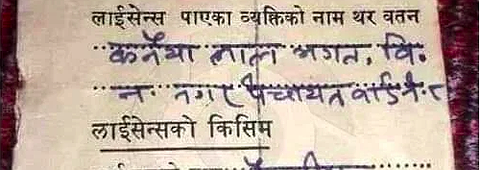 लाईसेन्स पाएका व्यक्तिको नाम थर वतन
कनैया लाल भगत, वि.
न. नगर पंचायत वार्ड नं. ८
लाईसेन्सको किसिम